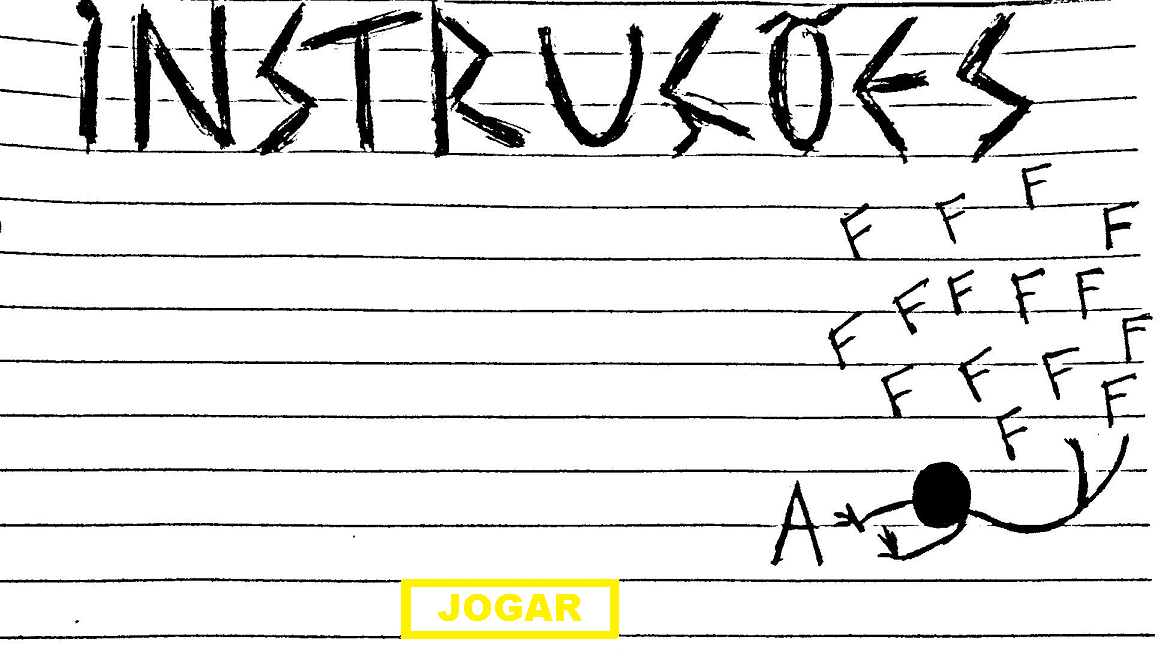 iNSTRUÇÕES
F F F F
F F F F
F F
F F F F
F
A
JOGAR